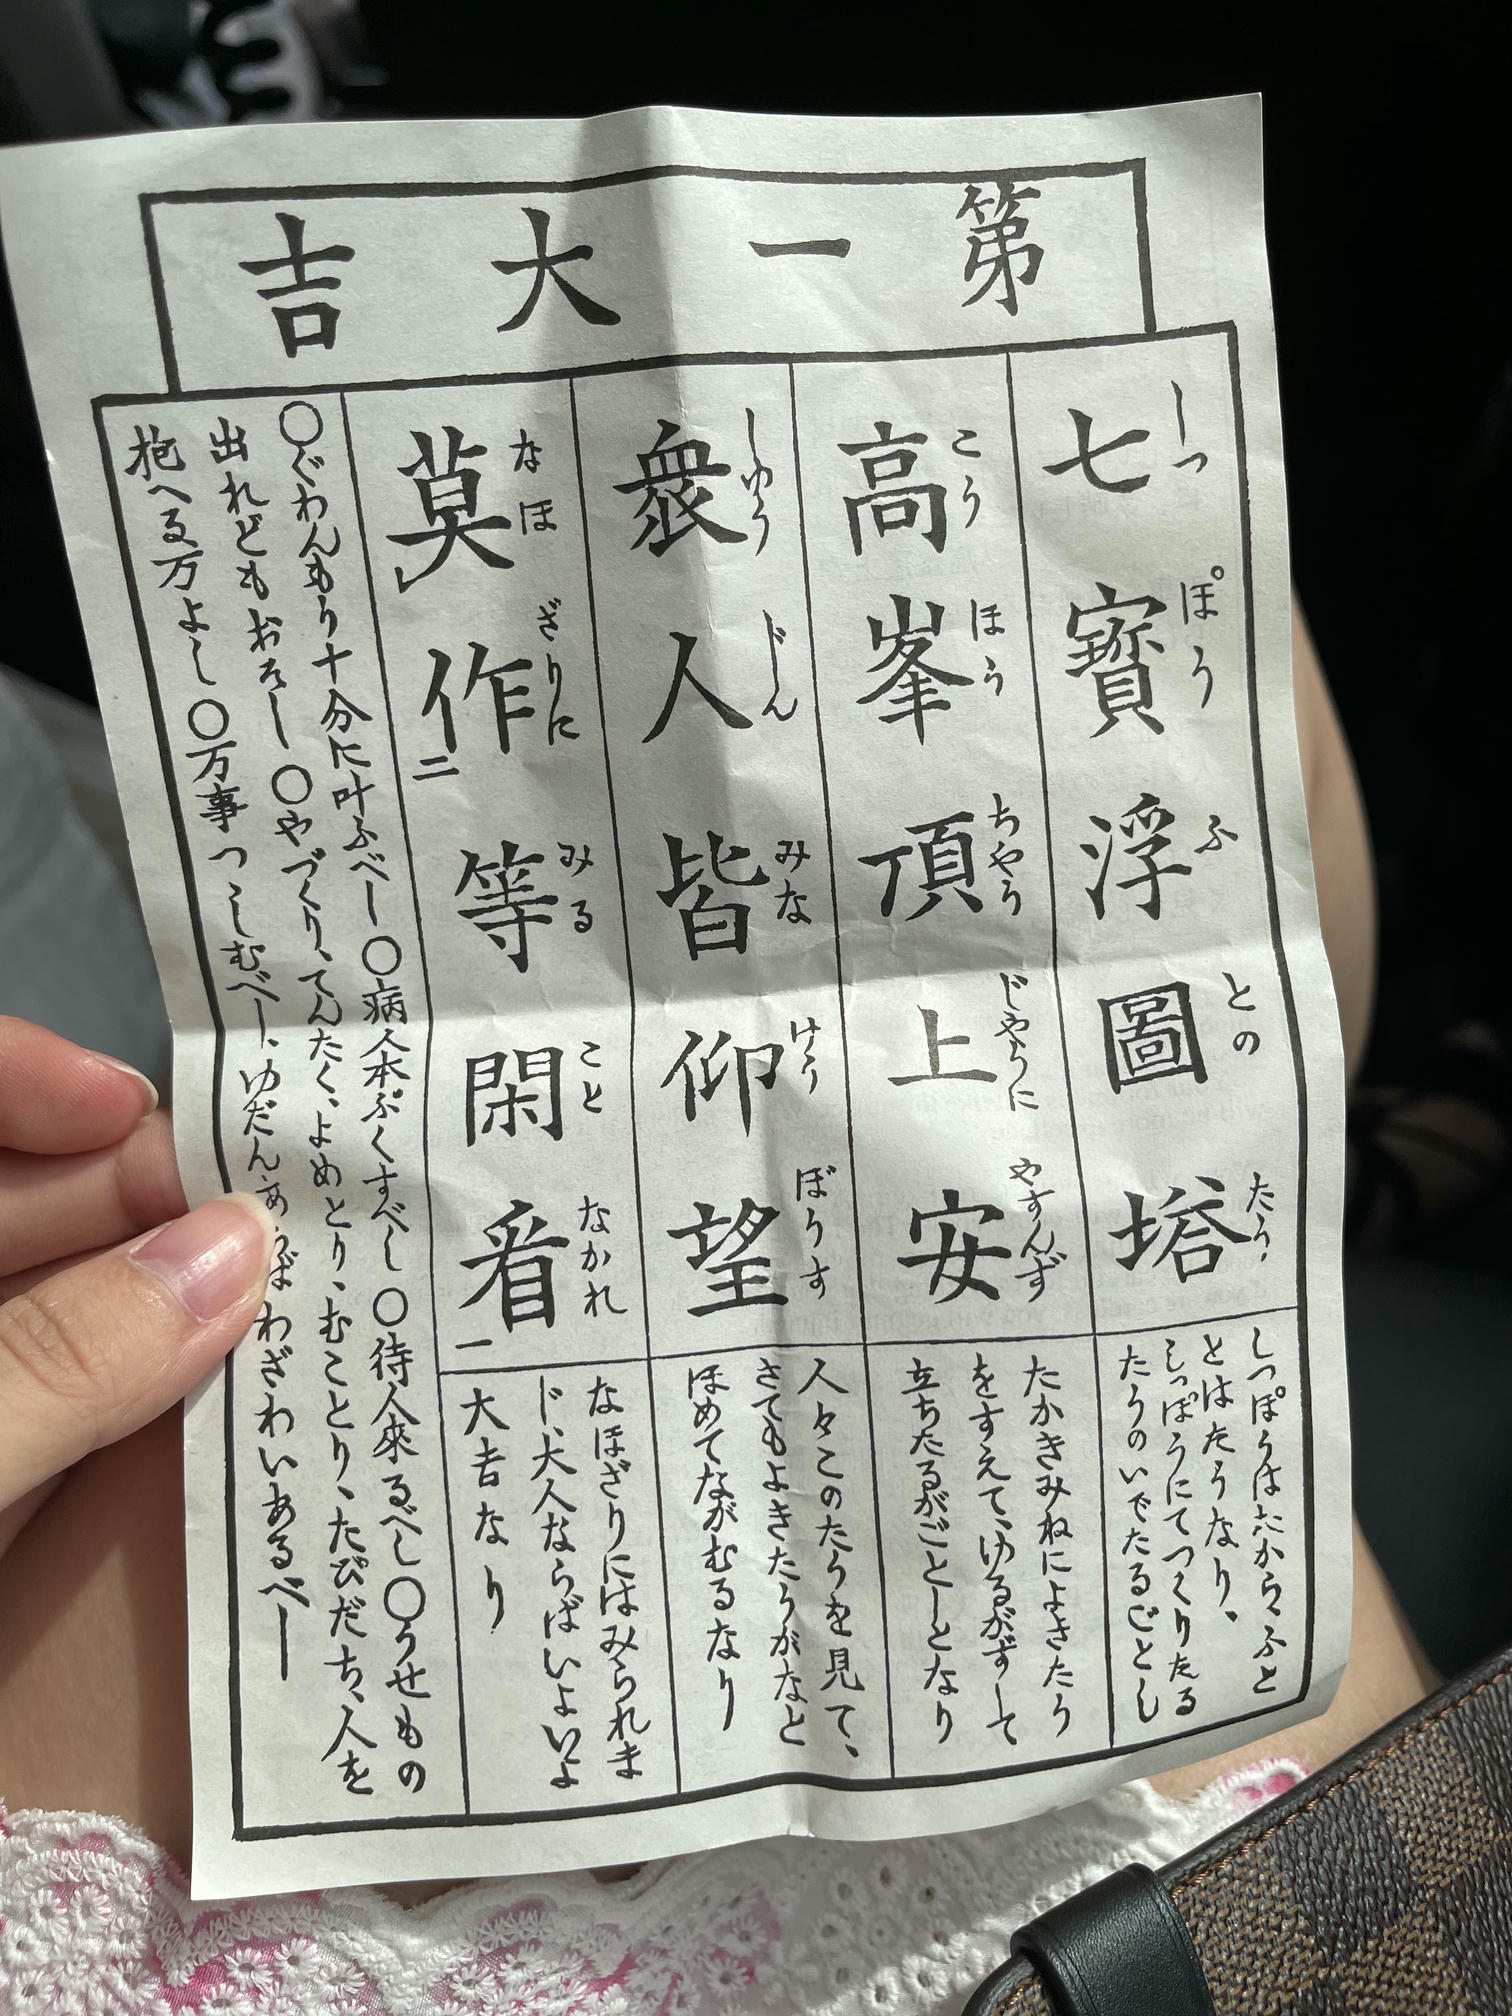 第一大吉
七寶浮圖塔
しつぽうふとのたう、
高峯頂上安
こうほうちやうじやうにやすんず
衆人皆仰望
しゆうじんみなけうぼうす
莫作等閑看
なほざりにみることなかれ
二
一
しつぽうはたから、ふと
とはたうなり。
しつぽうにてつくりたる
たうのいでたるごとし
たかきみねによきたう
をすえて、ゆるがずして
立ちたるがごとしとなり
人々このたうを見て、
さてもよきたうがなと
ほめてながむるなり
なほざりにはみられま
じ、大人ならばいよいよ
大吉なり
〇ぐわんもう十分に叶ふべし〇病人本ぷくすべし〇待人來るべし〇うせもの
出れどもおそし〇やづくり、てんたく、よめとり、むことり、たびだち、人を
抱へる万よし〇万事つゝしむべし、ゆだんあらばわざわいあるべし